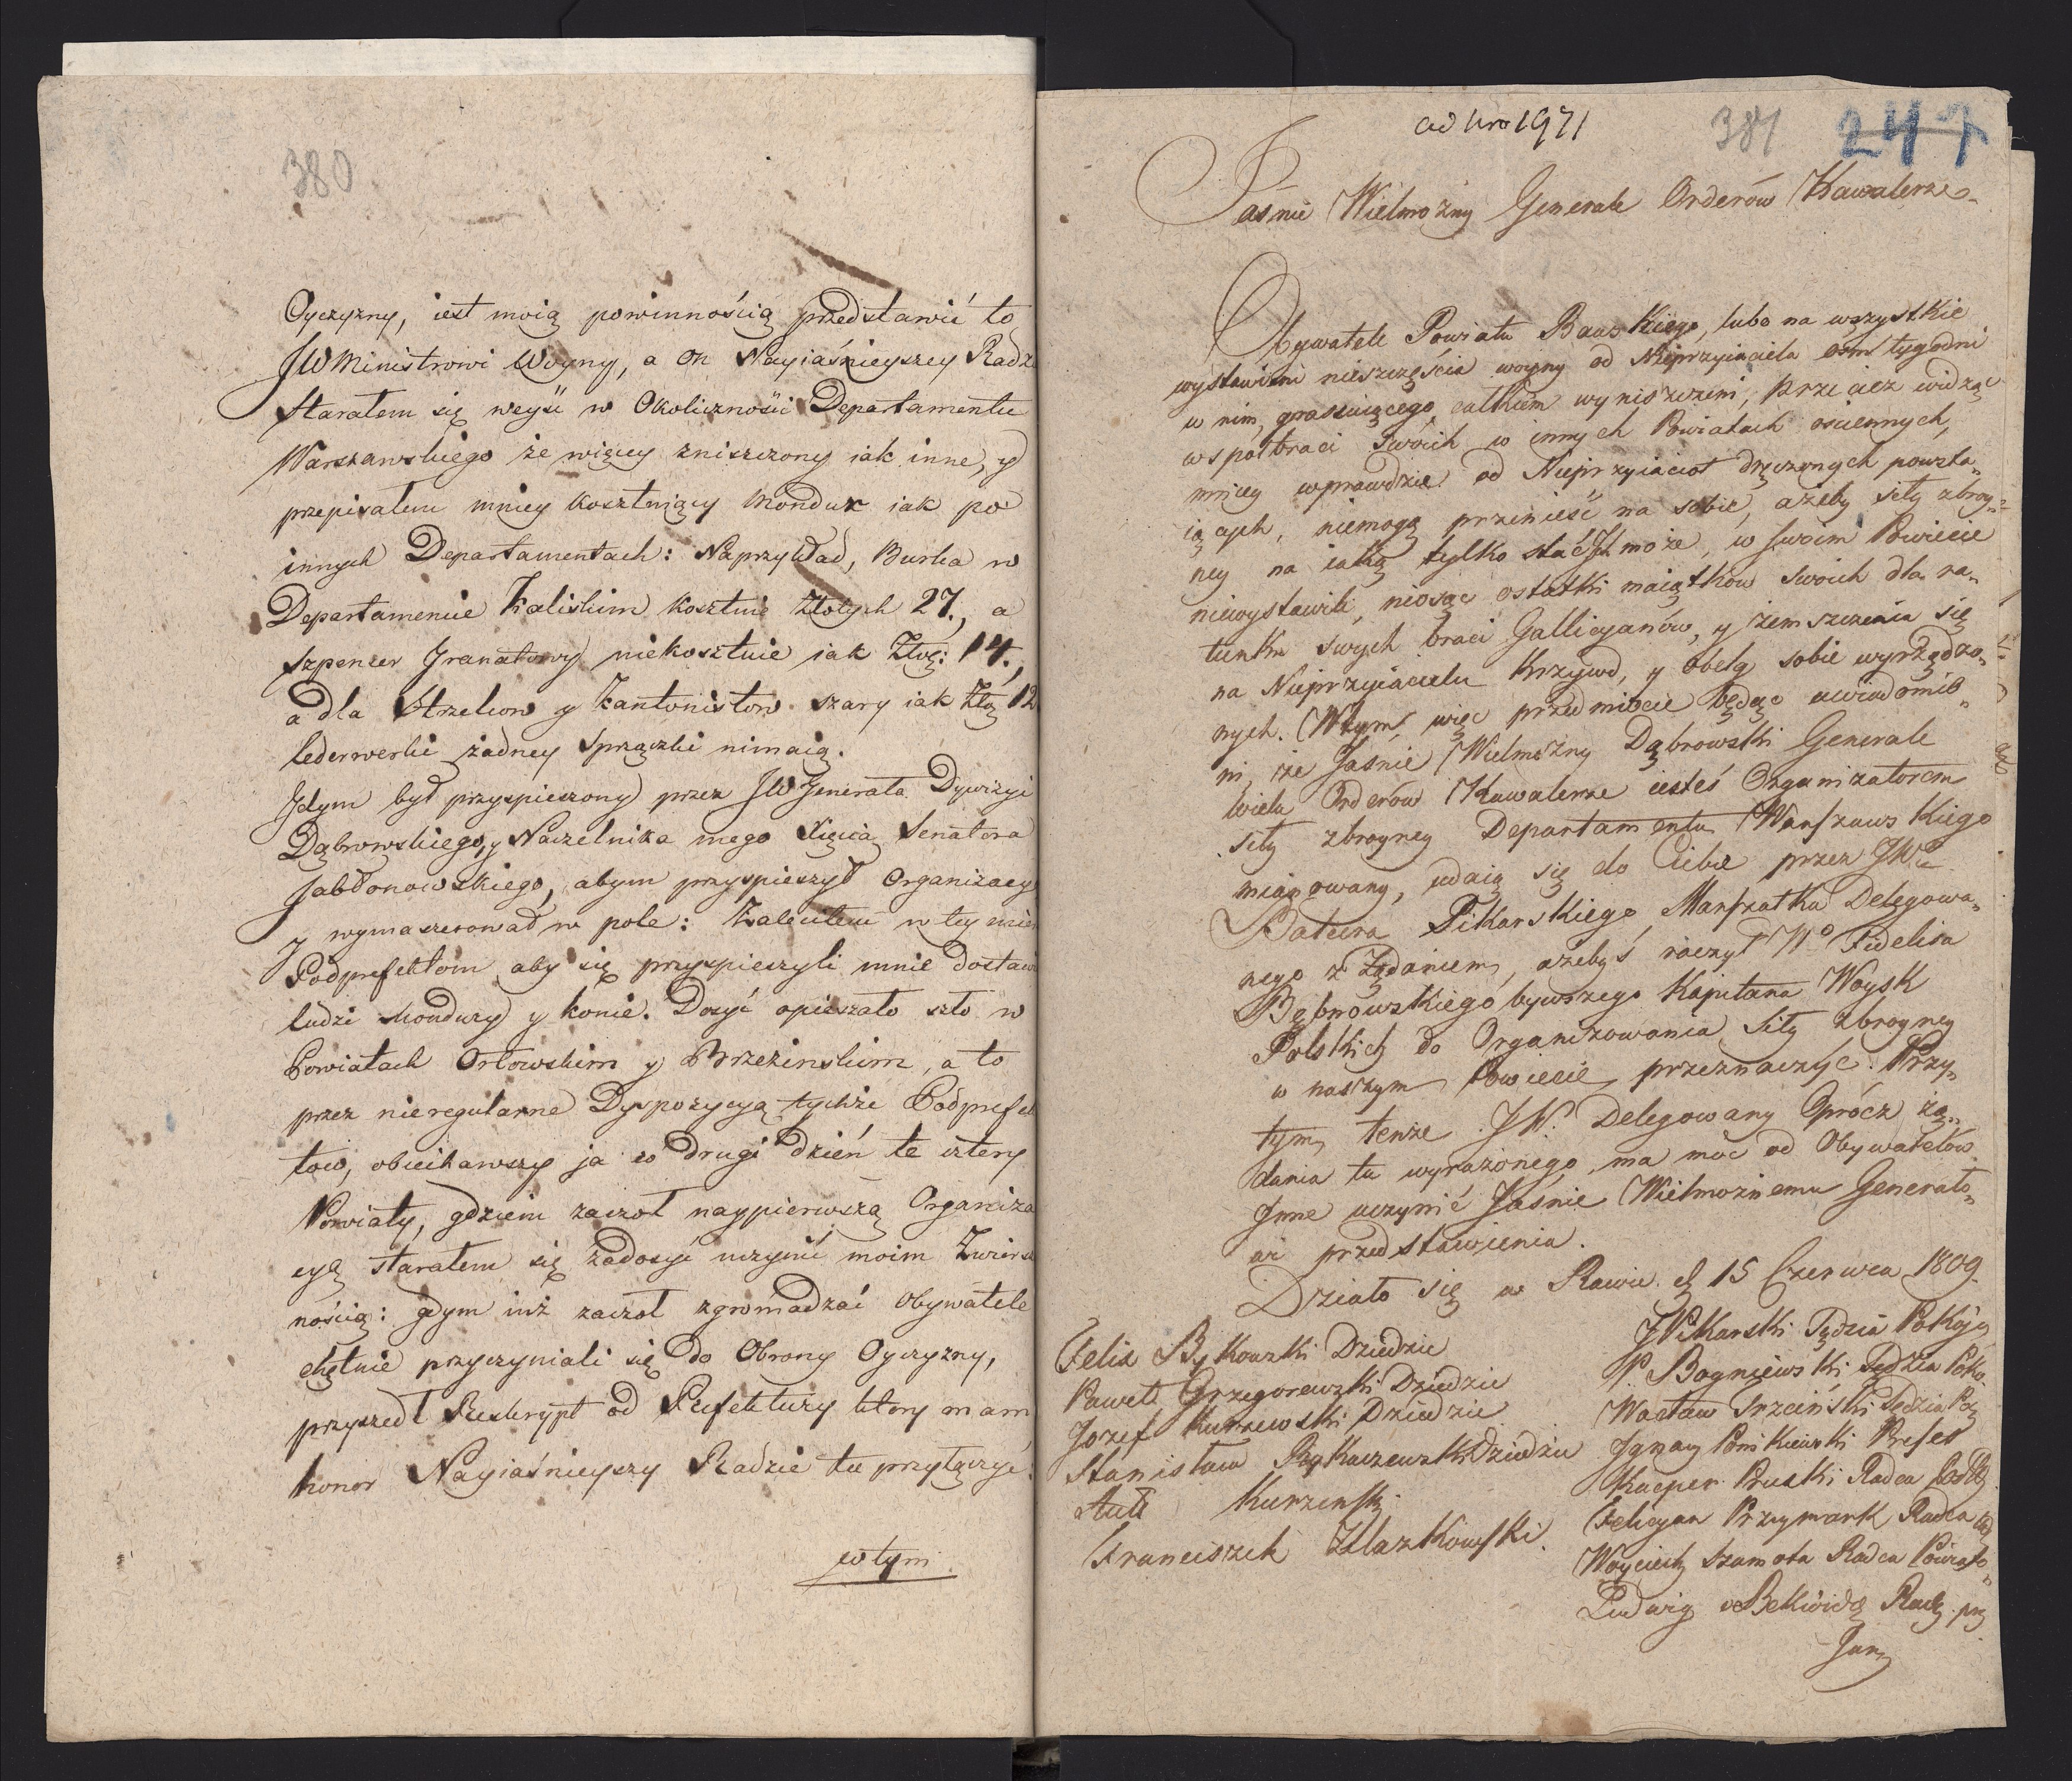 380
Oyczyzny, iest moią powinnością przedstawić to
JWMinistrowi Woyny, a On Nayiaśnieyszey Radz
Starałem się weyść w Okoliczności Departamentu
Warszawskiego że więcey zniszczony iak inne, y
przepisałem mniey kosztuiący Mondur iak po
innych Departamentach: Naprzykład, Burka w
Departamencie Kaliskim kosztuie Złotych 27., a
Szpencer Granatowy niekosztuie iak Złtg: 14.,
a dla Strzelcow y Kantonistow szary iak Złtg 12
lederwerki żadney Sprzączki nimaią.
Gdym był przyspieszony przez JWGenerała Dywizyi
Dąbrowskiego, y Naczelnika mego Xięcia Senatora
Jabłonowskiego, abym przyspieszył Organizacyą
y wymaszerował w pole: Zaleciłem w tey mie
Podprefektom aby się przyspieszyli mnie dostawi
ludzi Mondury y konie. Dosyć opieszało szło w
Powiatach Orłowskim y Brzezinskim, a to
przez nieregularne Dyspozycyą tychże Podprefek
tow, obiechawszy ja co drugi dzień te cztery
Powiaty, gdziem zaczoł naypierwszą Organiza
cyą starałem się zadosyć uczynić moim Zwierzch
nością: gdym iuż zaczoł zgromadzać Obywatele
chętnie przyczyniali się do Obrony Oyczyzny,
przyszedł Reskrypt od Prefektury ktory mam
honor Nayiaśnieyszy Radzie tu przyłączyć:
w tym
ad Nro 1971
381
247
Jaśnie Wielmożny Generale Orderów Kawalerze
Obywatele Powiatu Rawskiego, lubo na wszystkie
wystawieni nieszczęścia woyny od Nieprzyiaciela osm tygodni
w nim, grassuiącego, całkiem wyniszczeni, przecież widząc
współbraci Swoich w innych Powiatach ościennych,
mniey wprawdzie od Nieprzyiacioł dręczonych powsta„
iących, niemogą przenieść na sobie, ażeby siły zbroy„
ney na iaką tylko stać Ich może, w swoim Powiecie
niewystawili, niosąc ostatki maiątków Swoich dla ra„
tunku swych braci Gallicyanów, y zemszczenia się
na Nieprzyiacielu Krzywd, y obelg sobie wyrządzo„
nych. Wtym, więc przedmiocie będąc uwiadomie„
ni, że Jaśnie Wielmożny Dąbrowski Generale
Wielu Orderów Kawalerze iesteś Organizatorem
siły zbroyney Departamentu Warszawskiego
mianowany, udaią się do Ciebie przez JW
Batera Pikarskiego Marszałka Delegowa„
nego z Żądaniem, ażebyś raczył Wo Fidelisa
Bębnowskiego bywszego Kapitana Woysk
Polskich do Organizowania Siły Zbroyney
w naszym Powiecie przeznaczyć. Przy„
tym tenże JW. Delegowany Oprócz żą„
dania tu wyrażonego, ma moc od Obywatelów
Inne uczynić Jaśnie Wielmożnemu Generało„
wi przedstawienia.
Działo się w Rawie d. 15 Czerwca 1809.
Felix Bykowski Dziedzic
Paweł Grzegorewski Dziedzic
Jozef Kurzewski Dziedzic
Stanisław Rykaczewski Dziedzic
Kurzenski
Franciszek Zdazkowski.
JPikarski Sędzia Pokoju
P. Bogniewski Sędzia Poko.
Wacław Trzciński Sędzia Po
Ignacy Ponikiewski Prefes
Kacper Pruski Radca
Felicyan Przymark Radca
Woyciech Szamota Radca Powiato„
Ludwig Radz. pr